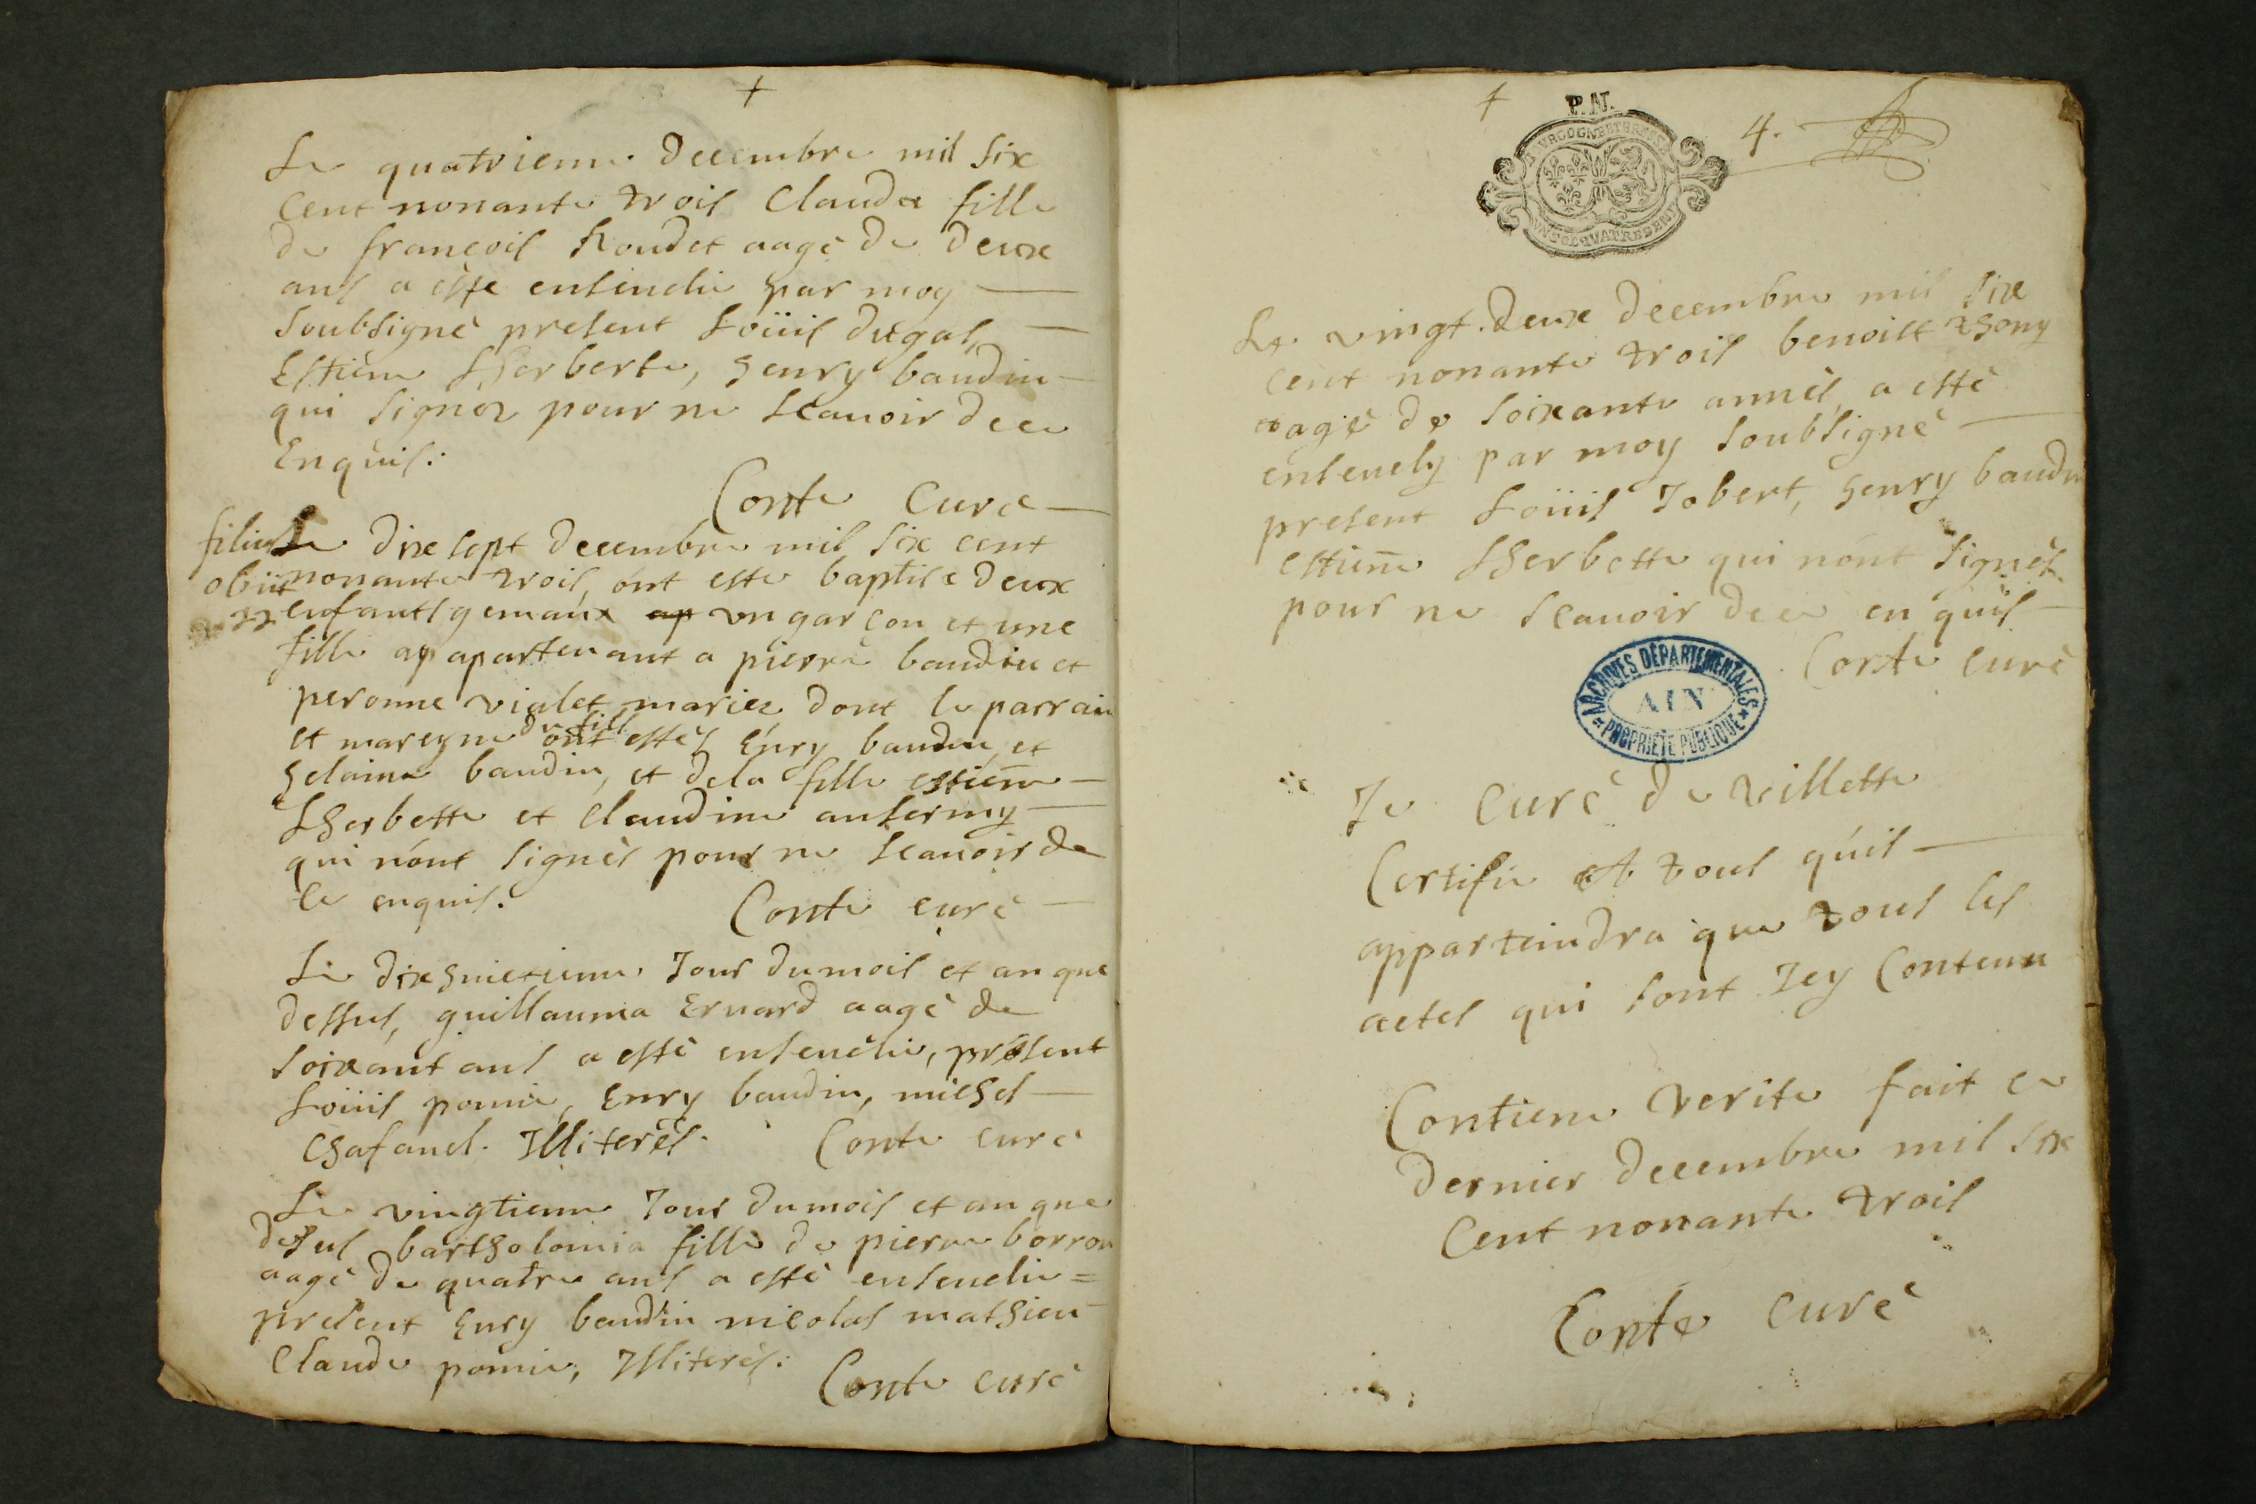 +
Le quatrieme decembre mil six
cent nonante trois Clauda fille
de francois Roudet aagé de deux
ans a este enseuelie par moy
soubsigné present Loüis dugas
Estiene Lherbette, henry baudin
qui signez pour ne scauoir de ce
Enquis:
Conte Curé
filius Le dix sept decembre mil six cent
obiit nonante trois, ónt este baptisé deux
22 enfants gemaux ap vn garcon et une
fille ap apartenant a pierre baudin et
peronne violet mariez dont le parrain
et mareyne du fils ont estés Enry baudin, et
helaine baudin, et de la fille estiene
Lherbette et claudine ansermy
qui n'ont signés pour ne scauoir de
ce enquis.
Conte curé
Le dix huictieme Jour du mois et an que
dessus, guillauma Ernard aagé de
soixant ans a esté enseuelie, present
Loüis pomie, Enry baudin, michel
Chafanel. Illiterés.
Conte curé
Le vingtieme Jour du mois et an que
dessus bartholomia fille de pierre borron
aagé de quatre ans a esté enseuelie =
present Enry baudin nicolas mathieu
Claude pomie, Illiterés:
Conte curé
+
P. NT.
4.
BVRGOGNE ET BRESSE
VN SOL QVATRE DEN
Le vingt deux decembre mil six
cent nonante trois benoist thony
aagé de soixante annés, a esté
enseuely par moy soubsigné
present Loüis Jobert, henry baudin
estiene Lherbette qui nónt signés
pour ne scauoir de ce enquis
Conte curé
ARCHIVES DÉPARTEMENTALES
AIN
* PROPRIÉTÉ PUBLIQUE *
Je Curé de villette
Certifie A tous quíl
appartiendra que tous les
actes qui sont Icy Contenu
Contiene verite fait ce
dernier decembre mil six
Cent nonante trois
Conte Curé